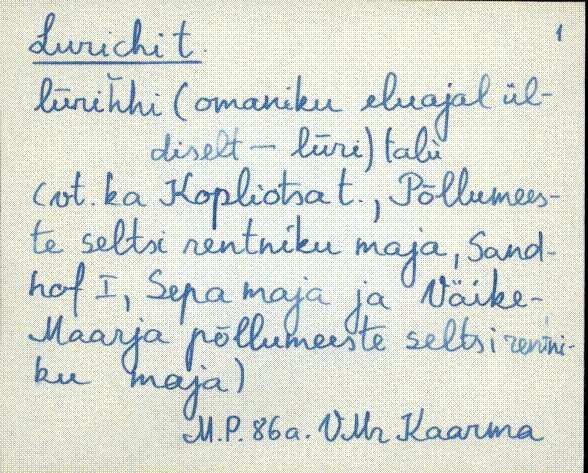 Lurichi t. 1
lūrih̆hi (omaniku eluajal ül-
diselt — lūri) talū
(vt. ka Kopliotsa t., Põllumees-
te seltsi rentniku maja, Sand-
hof I, Sepa maja ja Väike-
Maarja põllumeeste seltsi rentni-
ku maja)
M.P. 86a. VMr Kaarma